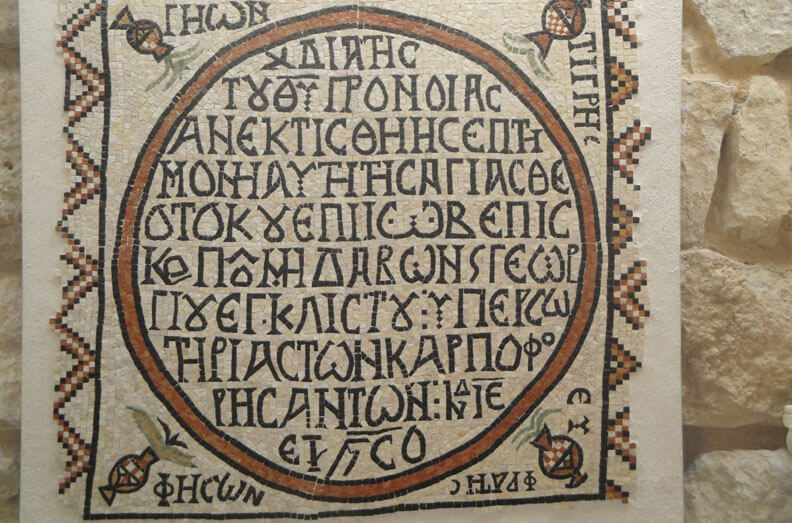 ΓΗΩΝ
ΤΙΓΡΗϹ
ΔΙΑΤΗϹ
ΤȣΘῩΠΡΟΝΟΙΑϹ
ΑΝΕΚΤΙϹΘΗΗϹΕΠΤΗ
ΜΟΝΗΑΥΤΗΤΗϹΑΓΙΑϹΘΕ
ΟΤΟΚȣΕΠΙΙΩΒΕΠΙϹ
ΜΙΔΑΒΩΝϚΓΕΩΡ
ΓΙȣΕΓ·ΚΛΙϹΤȣ:ΫΠΕΡϹΩ
ΤΗΡΙΑϹΤΩΝΚΑΡΠΟΦΟ
ΡΗϹΑΝΤΩΝ: ΙΕ
ϹΟ
ΦΗϹΩΝ
ΕΥ
ΦΡΑΤΗϹ